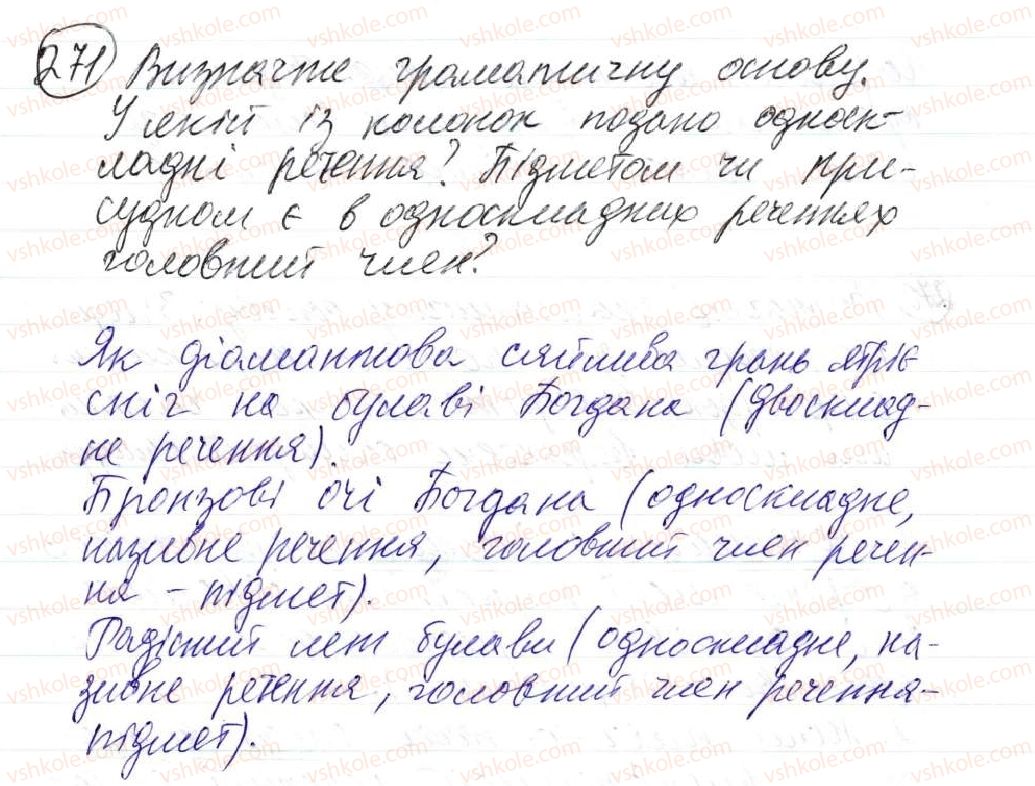 271 Визначте граматичну основу.
У якій із колонок подано односк-
ладні речення? Підметом чи при-
судком є в односкладних реченнях
головний член?
Як діамантова сяйлива грань ятріє
сніг на булаві Богдана (двосклад-
не речення).
Бронзові очі Богдана (односкладне,
називне речення, головний член речен-
ня - підмет).
Радісний лет булави (односкладне, на-
зивне речення, головний член речення-
підмет).